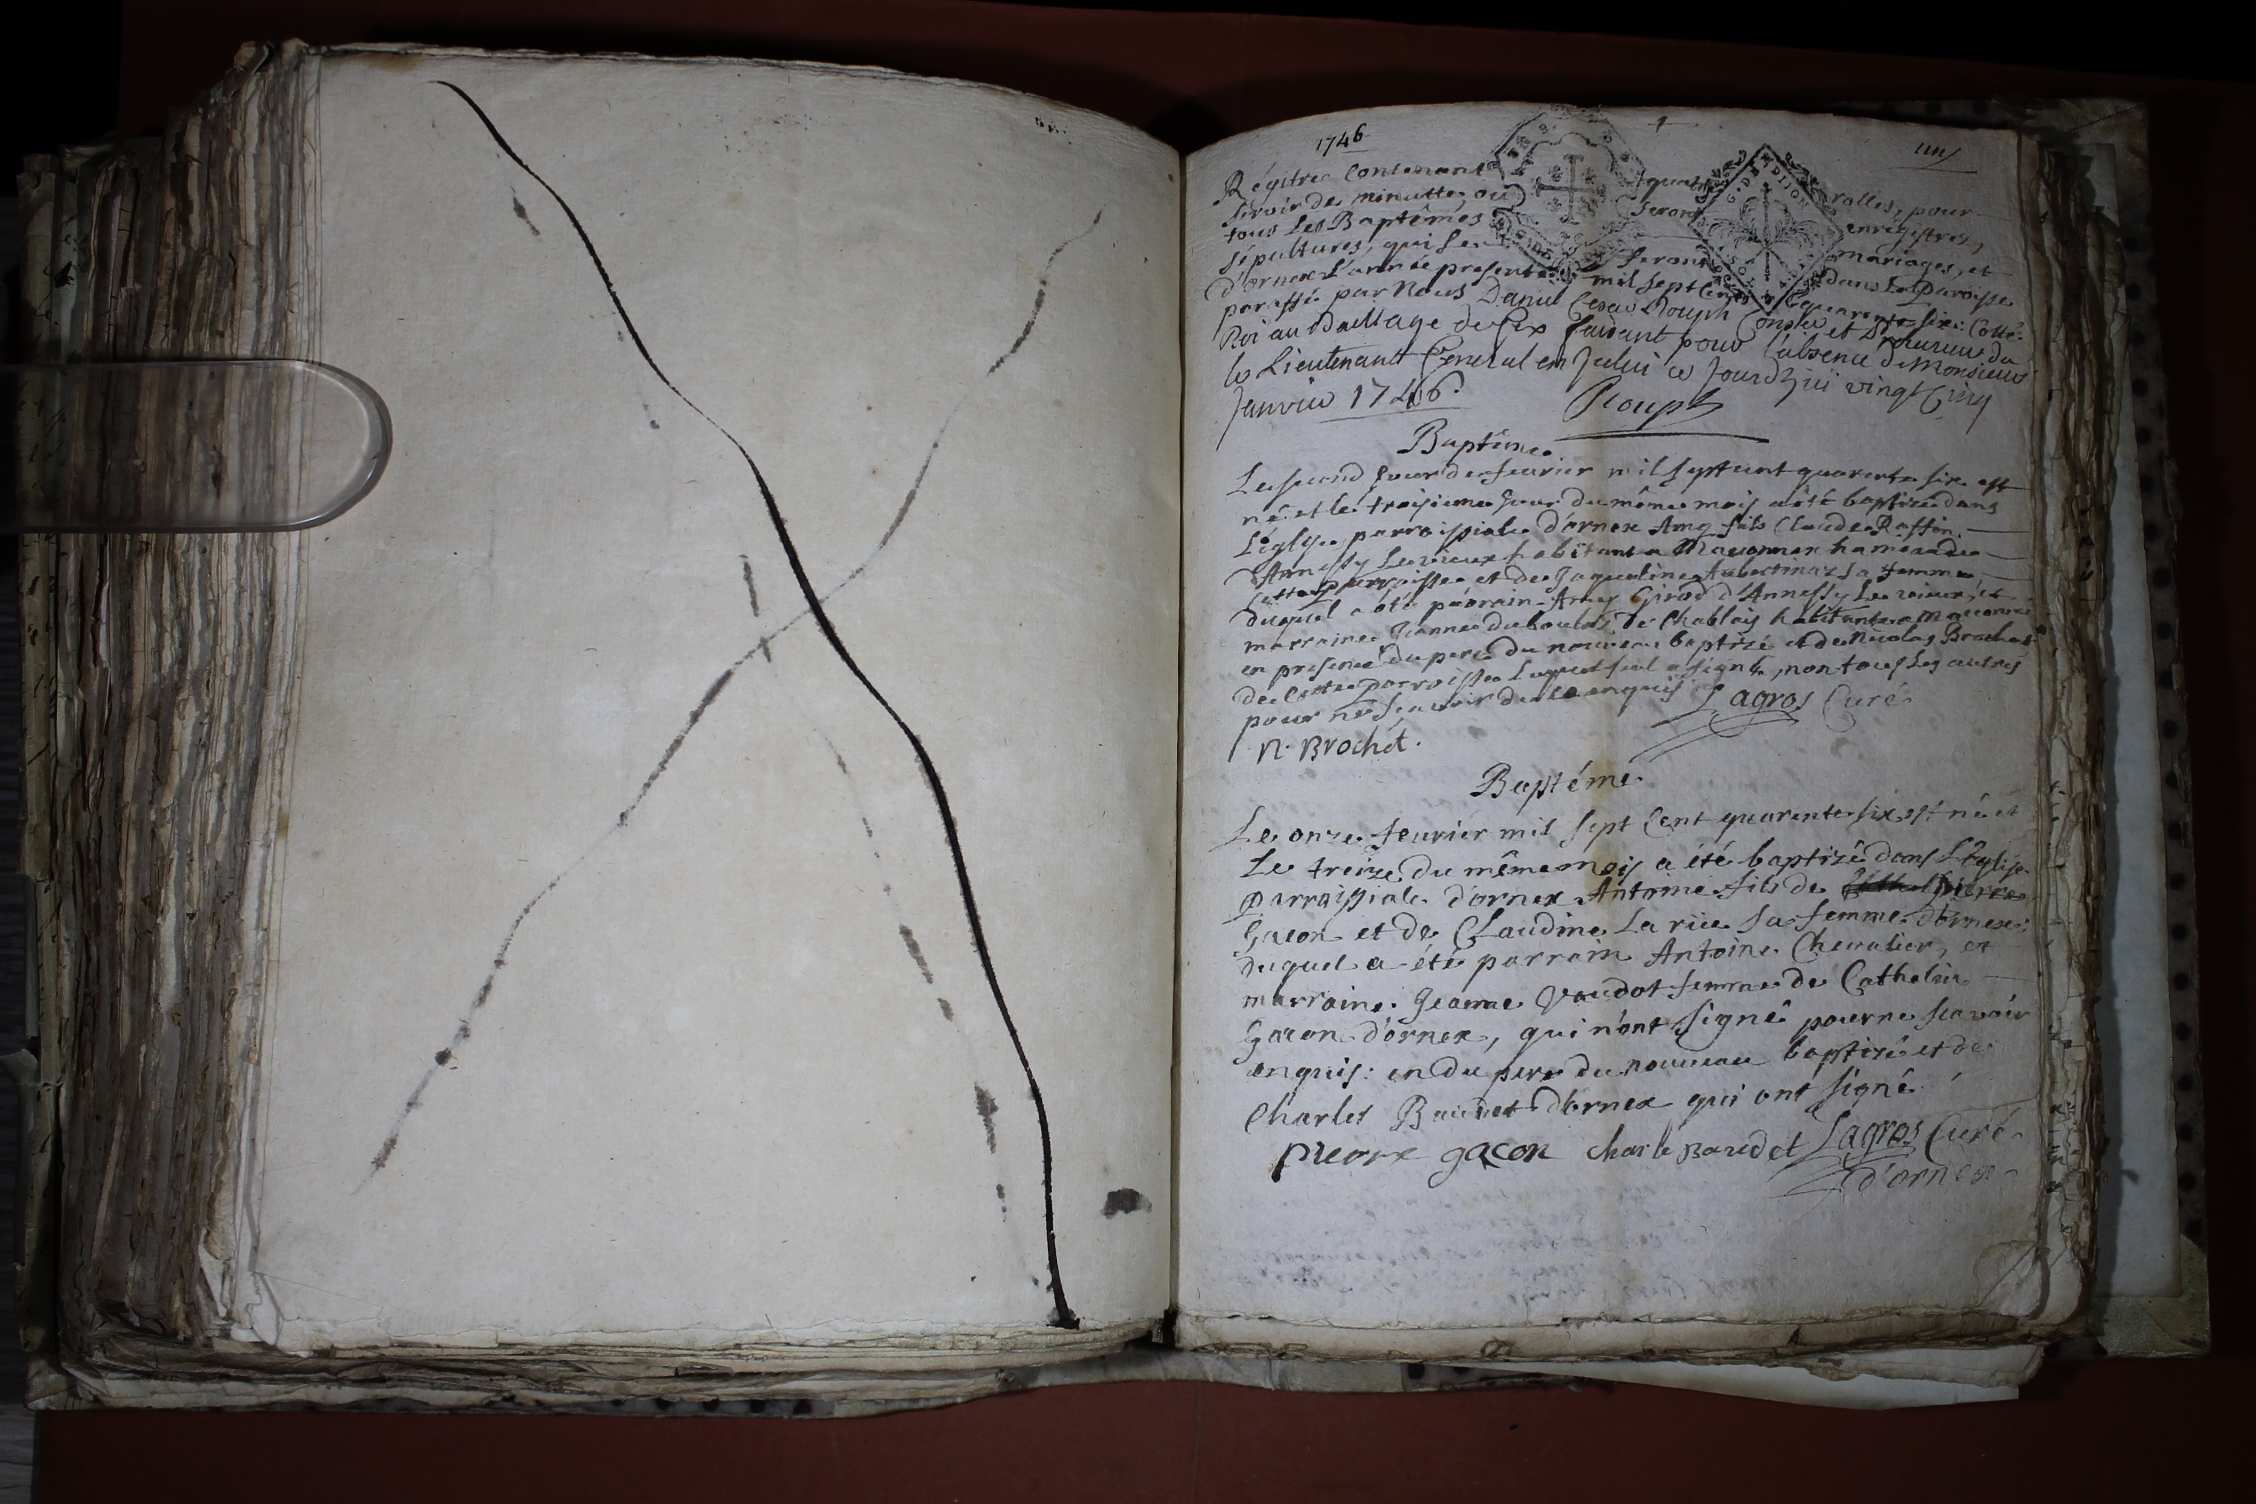 1746
Régitre Contenant quatre rolles, pour
servir de minutte, où seront enrégistrés,
tous Les Baptêmes mariages, et
sépultures, qui se feront dans La paroisse
d'ornex L'année presente mil sept Cents quarante six: Cotté
paraffé par Nous Daniel Cesar Rouph Conser et Procureur du
Roi au Bailliage de Gex faisant pour l'absence de Monsieur
le Lieutenant General en Jcelui ce Jourdhui vingt Cinq
Janvier 1746.
Rouph
G. DE DIJON
Baptême
Le second Jour de feurier mil sept cent quarente six est
né et le troisieme Jour du même mois a été baptizé dans
L'église parroissiale d'ornex Amy fils Claude Raffin
d'Annessy Le vieux habitant a Maconnex hameau de
cette parroisse et de Jaqueline sa femme,
duquel a été parrain Amy Girod d'Annessy Le vieux, et
marraine Jeanne du bouloz de Chablais habitante a Maconnex
en presence du pere du nouveau baptizé et de Nicolas Brochet
de Cette parroisse Lequel seul a signé, non tous Les autres
pour ne scavoir de ce enquis Lagros Curé
N. Brochét.
Baptéme
Le onze feurier mil sept Cent quarente six est né et
Le treize du même mois a été baptizé dans L'église
parroissiale d'ornex Antoine fils de pierre
Gacon et de Claudine La rüe sa femme d'ornex:
duquel a été parrain Antoine Chevalier, et
marraine Jeanne Vaudot femme de Cathelin
Gacon d'ornex, qui n'ont signé pour ne scavoir
enquis: en du pere du nouveau baptizé et de
Charles Baudet d'ornex qui ont signé
pierre gacon charle Baudet Lagros Curé
d'ornex